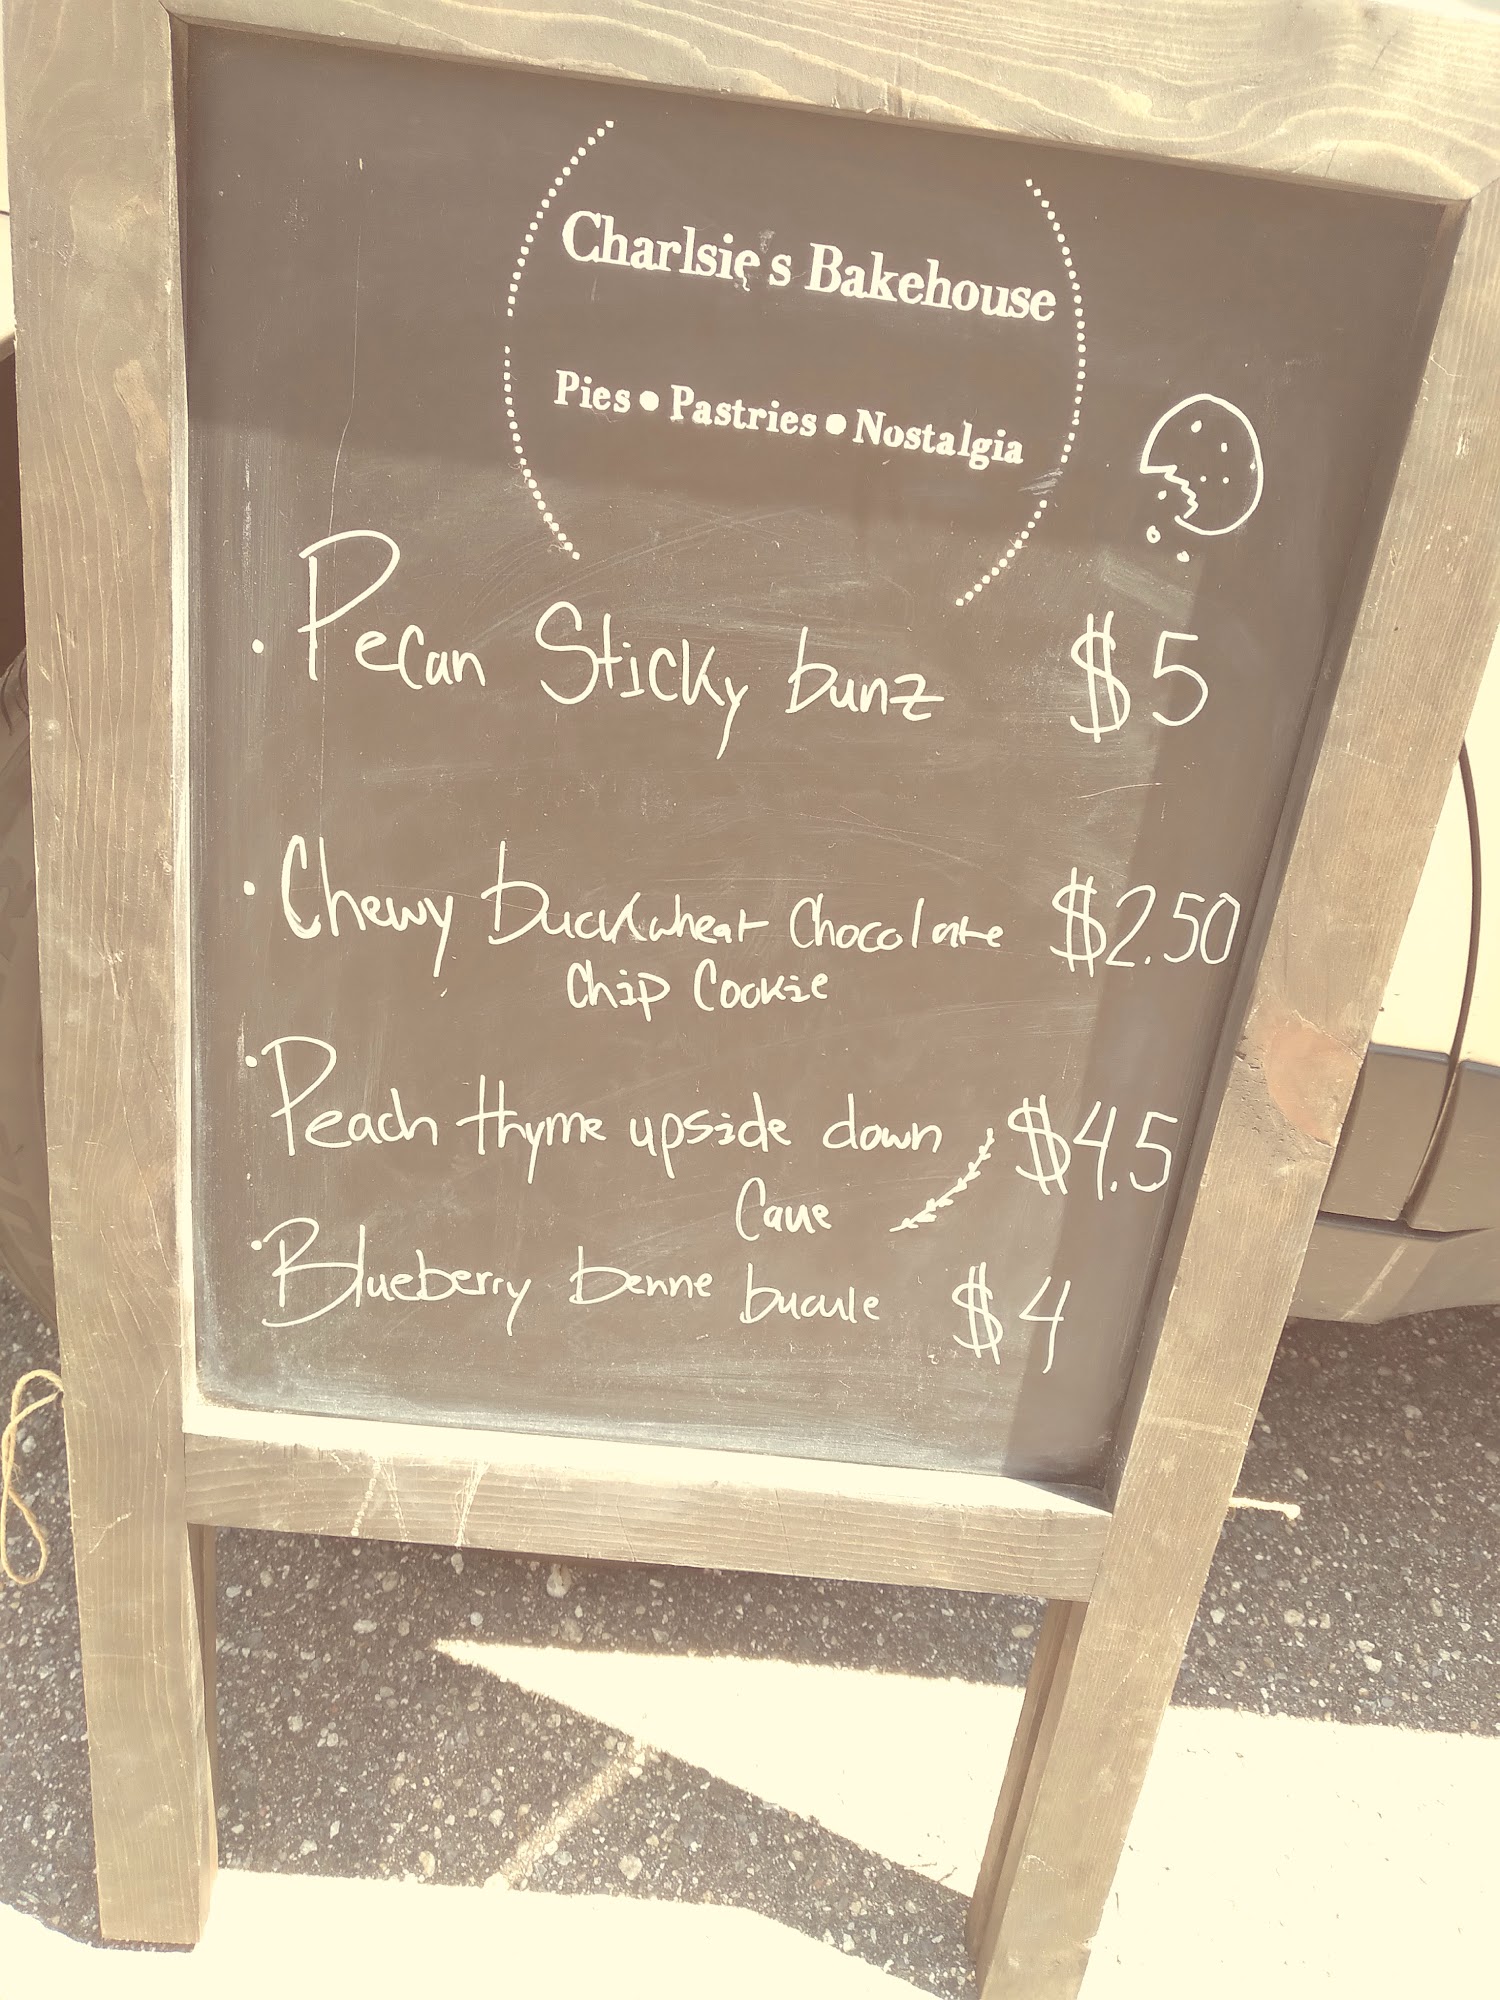 Charlsie's Bakehouse
Pies • Pastries • Nostalgia
• Pecan Sticky bunz $5
• Chewy buckwheat Chocolate $2.50
Chip Cookie
• Peach thyme upside down $4.5
Cake
• Blueberry benne buckle $4